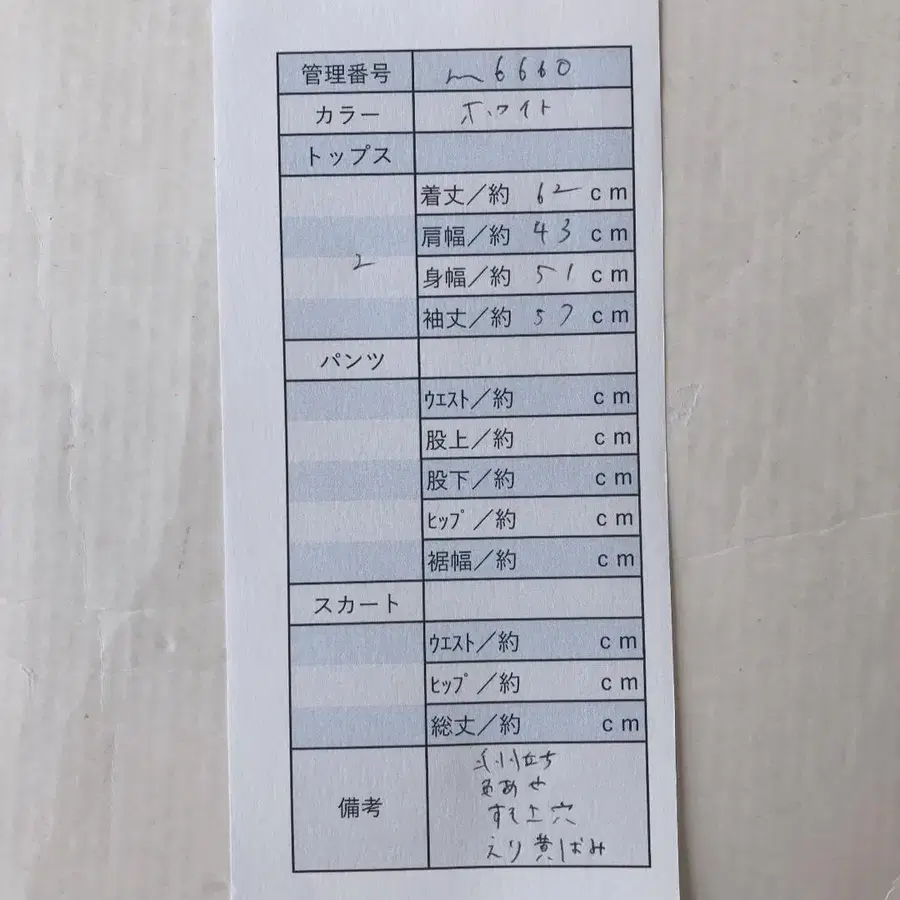 管理番号 m6660
カラー ホワイト
トップス
2
着丈／約 62 cm
肩幅／約 43 cm
身幅／約 51 cm
袖丈／約 57 cm
パンツ
ｳｴｽﾄ／約 cm
股上／約 cm
股下／約 cm
ﾋｯﾌﾟ／約 cm
裾幅／約 cm
スカート
ｳｴｽﾄ／約 cm
ﾋｯﾌﾟ／約 cm
総丈／約 cm
備考
毛羽立ち
色あせ
すそ上穴
えり黄ばみ